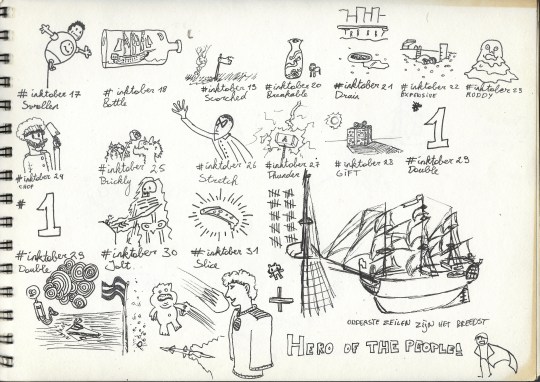 #inktober 17
Swollen
#inktober 18
Bottle
#inktober 19
Scorched
#inktober 20
Breakable
#inktober 21
Drain
#inktober 22
#inktober 23
MUDDY
#inktober 24
CHOP
#inktober 25
Prickly
#inktober 26
Stretch
#inktober 27
Thunder
#inktober 28
GiFT
#1
#inktober 29
Double
#1
#inktober 29
Double
#inktober 30
Jolt
#inktober 31
Slice
ONDERSTE ZEILEN ZIJN HET BREEDST
HERO OF THE PEOPLE!